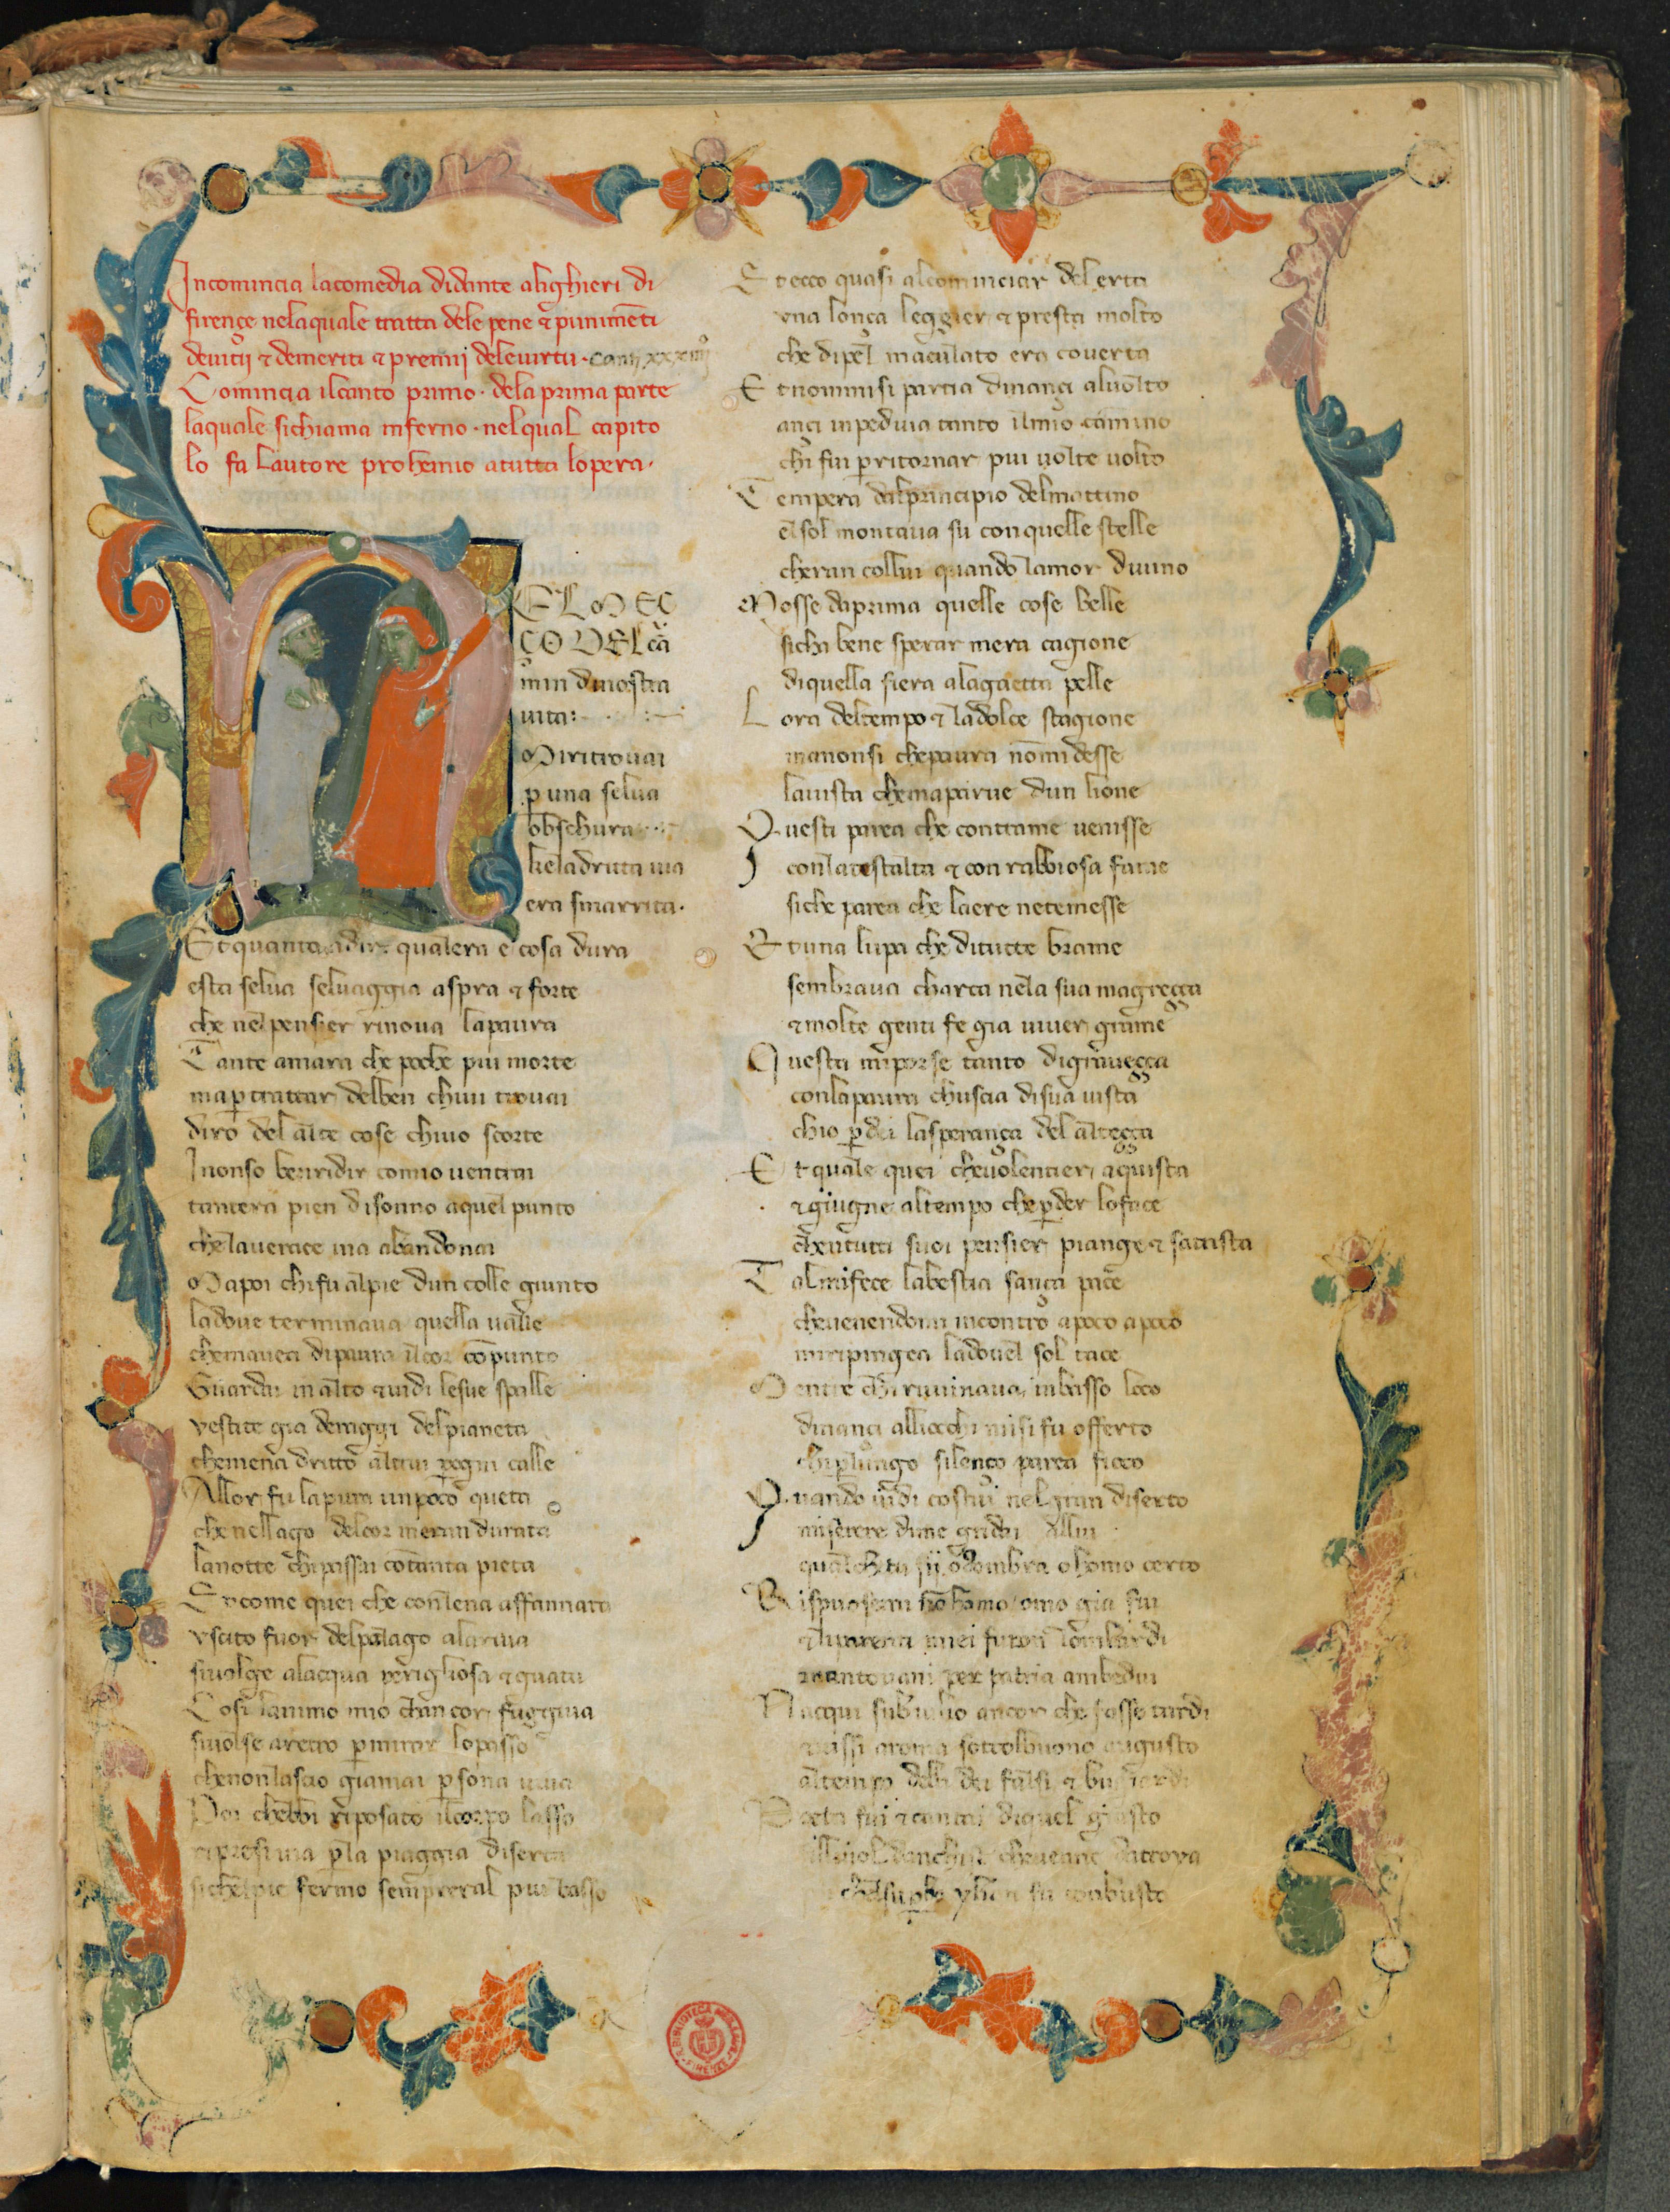 Incomincia lacomedia didante alighieri di
firençe nelaquale tratta dele pene & punimẽti
deuitij & demeriti & premij deleuirtu·
Comincia ilcanto primo· dela prima parte
laquale sichiama inferno ·nelqual capito
lo fa lautore prohemio atutta lopera·
NEL MEÇ
ÇO DEL cã
min dinostra
uita:
Mi ritrouai
p una selua
obschura
kela dritta uia
era smarrita·
Et quanto adir qualera e cosa dura
esta selua seluaggia aspra & forte
che nel pensier rinoua lapaura
Tante amara che poche piu morte
ma p trattar delben chiui trouai
diro del altre cose chiuo scorte
Inonso ben ridir comio uentrai
tantera pien disonno aquel punto
che lauerace uia abandonai
Mapoi chifu alpie dun colle giunto
ladoue terminaua quella ualle
chemauea dipaura ilcor cõpunto
Guardai in alto & uidi lesue spalle
vestite gia deraggi delpianeta
chemena dritto altrui p ogni calle
Allor fu lapaura unpoco queta
che nellago delcor mera durata
lanotte chipassai cotanta pieta
Et come quei che conlena affannata
vscito fuor delpelago alariua
siuolge alacqua perigliosa & guata
Cosi lanimo mio chancor fuggiua
siuolse aretro p mirar lopasso
chenonlascio giamai psona uiua
Poi chebbi riposato ilcorpo lasso
ripresi uia pla piaggia diserta
sichelpie fermo sempreral piu basso
Et ecco quasi alcominciar delerta
vna lonça leggier & presta molto
che dipel maculato era couerta
Et nonmisi partia dinançi aluolto
ançi inpediua tanto ilmio camino
chi fui p ritornar piu uolte uolto
Tempera dalprincipio delmattino
elsol montaua su con quelle stelle
cheran collui quando lamor diuino
Mosse daprima quelle cose belle
sicha bene sperar mera cagione
diquella fiera alagaetta pelle
Lora deltempo & ladolce stagione
manonsi chepaura nomi desse
lauista chemaparue dun lione
Questi parea che contrame uenisse
conlatestalta & con rabbiosa fame
siche parea che laere netemesse
Et una lupa che ditutte brame
sembraua charca nela sua magreçça
& molte genti fe gia uiuer grame
Questa mi porse tanto digraueçça
conlapaura chuscia disua uista
chio pdei lasperança del alteçça
Et quale quei cheuolentier aquista
& giugne altempo che pder loface
chentutti suoi pensier piange & satrista
Talmifece labestia sança pace
cheuenendomi incontro apoco apoco
miripingea ladouel sol tace
Mentre chi ruuinaua inbasso loco
dinançi alliocchi misi fu offerto
chi plungo silenço parea fioco
Quando uidi costui nelgran diserto
miserere dime gridai allui
qual che tu sij o dombra o homo certo
Rispuosemi nõ homo omo gia fui
& li parenti miei furon lombardi
mantouani per patria ambedui
Nacqui sub iulio ancor che fosse tardi
uissi aroma sottolbuono augusto
altempo deli dei falsi & bugiardi
Poeta fui & cantai diquel giusto
figliuol danchise cheuenne datroya
chelsupbo ylion fu conbusto